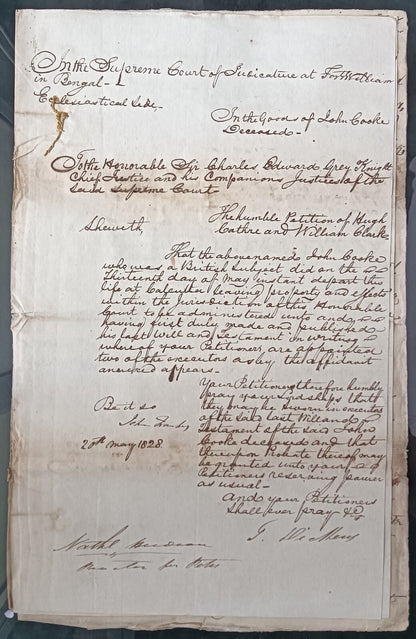 In the Supreme Court of Judicature at Fort William
in Bengal
Ecclesiastical Side
In the Goods of John Cooke
Deceased
To the Honorable Sir Charles Edward Grey Knight
Chief Justice and his Companions Justices of the
said Supreme Court
The humble Petition of Hugh
Cathre and William Clark
Sheweth,
That the abovenamed John Cooke
who was a British Subject did on the
thirteenth day of May instant depart this
life at Calcutta leaving property and effects
within the Jurisdiction of this Honorable
Court to be administered unto and
having first duly made and published
his last Will and Testament in Writing
whereof your Petitioners are appointed
two of the executors as by the affidavit
annexed appears
Your Petitioners therefore humbly
pray your Lordships that
they may be sworn in executors
of the said last Will and
Testament of the said John
Cooke deceased and that
thereupon Probate thereof may
be granted unto your
Petitioners reserving power
as usual
And your Petitioners
shall ever pray &c
Be it so
20th May 1828